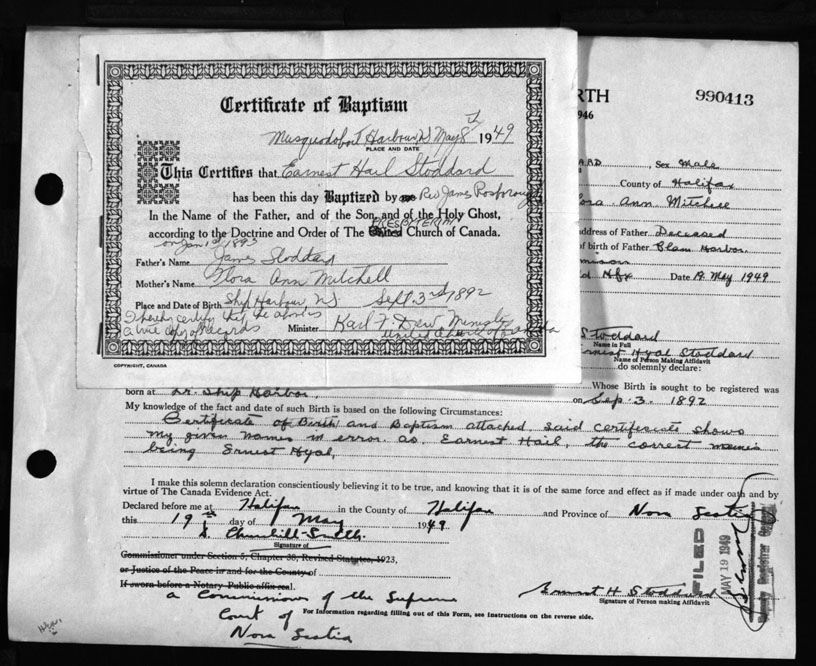 Certificate of Baptism
Musquodoboit Harbour NS May 8th 1949
PLACE AND DATE
This Certifies that Earnest Hail Stoddard
has been this day Baptized by Rev James Rosborough
In the Name of the Father, and of the Son, and of the Holy Ghost,
PRESBYTERIAN
according to the Doctrine and Order of The United Church of Canada.
on Jan 1st 1893
Father's Name James Stoddard
Mother's Name Flora Ann Mitchell
Place and Date of Birth Ship Harbour, NS Sept. 3rd 1892
I hereby certify that the above is
a true copy of records
Minister Karl F. Drew Minister
United Church of Canada
COPYRIGHT, CANADA
RTH 990413
946
ARD, Sex Male
County of Halifax
lora Ann Mitchell
ddress of Father Deceased
of birth of Father Clam Harbor.
d Hfx Date 19 May 1949
Stoddard
Name in Full
rnest Hyal Stoddard
Name of Person Making Affidavit
do solemnly declare:
Whose Birth is sought to be registered was
born at Lr. Ship Harbor, on Sep. 3. 1892
My knowledge of the fact and date of such Birth is based on the following Circumstances:
Certificate of Birth and Baptism attached, said certificate shows
my given names in error. as. Earnest Hail, the correct names
being Ernest Hyal,
I make this solemn declaration conscientiously believing it to be true, and knowing that it is of the same force and effect as if made under oath and by
virtue of The Canada Evidence Act.
Declared before me at Halifax in the County of Halifax and Province of Nova Scotia
this 19th day of May 1949.
A. Churchill-Smith
Signature of
Commissioner under Section 5, Chapter 38, Revised Statutes, 1923,
or Justice of the Peace in and for the County of
If sworn before a Notary Public affix seal.
a Commissioner of the Supreme
Court of
Nova Scotia
Ernest H Stoddard
Signature of Person making Affidavit
For Information regarding filling out of this Form, see instructions on the reverse side.
FILED
MAY 19 1949
Deputy Registrar General